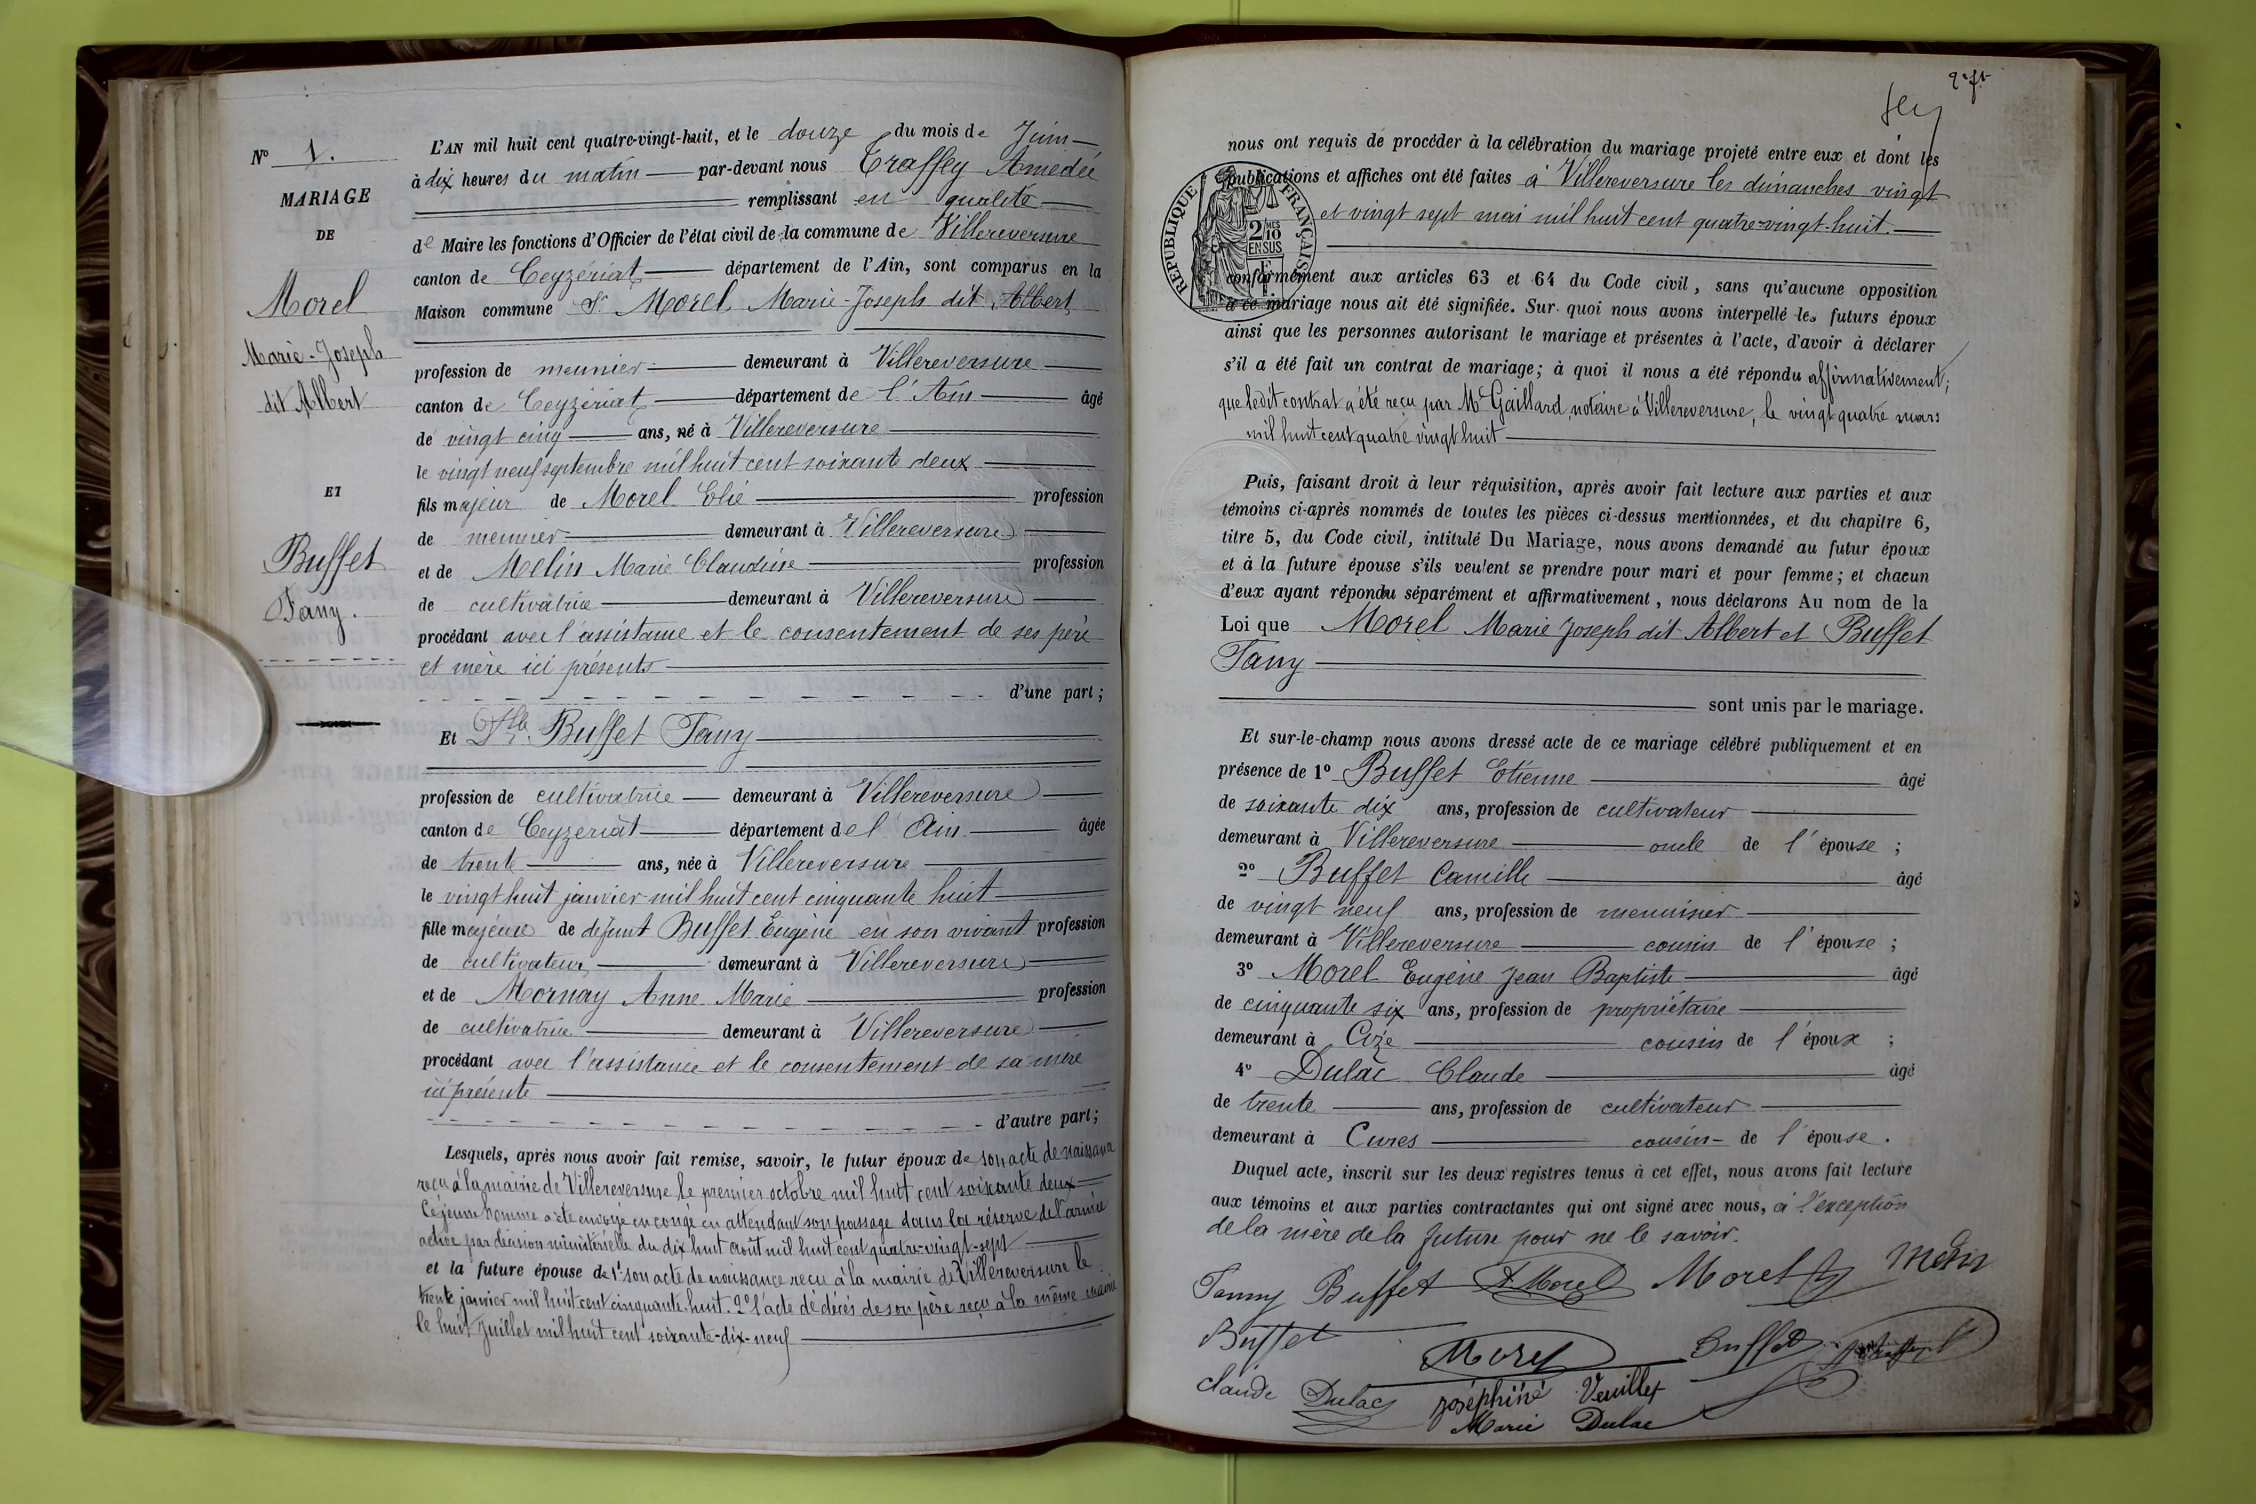 Nº 1.
MARIAGE
DE
Morel
Marie-Joseph
dit Albert
ET
Buffet
Fany.
L'AN mil huit cent quatre-vingt-huit, et le douze du mois de Juin
à dix heures du matin par-devant nous Traffey Amedée
remplissant en qualité
de Maire les fonctions d'Officier de l'état civil de la commune de Villereversure
canton de Ceyzériat département de l'Ain, sont comparus en la
Maison commune Sr Morel, Marie-Joseph dit Albert
profession de meunier demeurant à Villereversure
canton de Ceyzériat département de l'Ain âgé
de vingt cinq ans, né à Villereversure
le vingt neuf septembre mil huit cent soixante deux
fils majeur de Morel Elie profession
de meunier demeurant à Villereversure
et de Melin Marie Claudine profession
de cultivatrice demeurant à Villereversure
procédant avec l'assistance et le consentement de ses père
et mère ici présents
d'une part ;
Et Dlle Buffet Fany
profession de cultivatrice demeurant à Villereversure
canton de Ceyzeriat département de l'Ain âgée
de trente ans, née à Villereversure
le vingt huit janvier mil huit cent cinquante huit
fille majeure de defunt Buffet Eugène en son vivant profession
de cultivateur demeurant à Villereversure
et de Mornay Anne Marie profession
de cultivatrice demeurant à Villereversure
procédant avec l'assistance et le consentement de sa mère
ici présente
d'autre part ;
Lesquels, après nous avoir fait remise, savoir, le futur époux de son acte de naissance
reçu à la mairie de Villereversure le premier octobre mil huit cent soixante deux
Ce jeune homme a été envoyé en congé en attendant son passage dans la réserve de l'armée
active par décision ministérielle du dix huit août mil huit cent quatre-vingt-sept
et la future épouse de 1º son acte de naissance reçu à la mairie de Villereversure le
trente janvier mil huit cent cinquante-huit. 2º l'acte de décès de son père reçu à la même mairie
le huit juillet mil huit cent soixante-dix-neuf
nous ont requis de procéder à la célébration du mariage projeté entre eux et dont les
publications et affiches ont été faites à Villereversure les dimanches vingt
et vingt sept mai mil huit cent quatre-vingt-huit.
RÉPUBLIQUE FRANÇAISE
2/10 MES
EN SUS
conformément aux articles 63 et 64 du Code civil, sans qu'aucune opposition
à ce mariage nous ait été signifiée. Sur quoi nous avons interpellé les futurs époux
ainsi que les personnes autorisant le mariage et présentes à l'acte, d'avoir à déclarer
s'il a été fait un contrat de mariage ; à quoi il nous a été répondu affirmativement ;
que ledit contrat a été reçu par Me Gaillard, notaire à Villereversure, le vingt quatre mars
mil huit cent quatre vingt huit
Puis, faisant droit à leur réquisition, après avoir fait lecture aux parties et aux
témoins ci-après nommés de toutes les pièces ci-dessus mentionnées, et du chapitre 6,
titre 5, du Code civil, intitulé Du Mariage, nous avons demandé au futur époux
et à la future épouse s'ils veulent se prendre pour mari et pour femme ; et chacun
d'eux ayant répondu séparément et affirmativement, nous déclarons Au nom de la
Loi que Morel Marie Joseph dit Albert et Buffet
Fany
sont unis par le mariage.
Et sur-le-champ nous avons dressé acte de ce mariage célébré publiquement et en
présence de 1º Buffet Etienne âgé
de soixante dix ans, profession de cultivateur
demeurant à Villereversure oncle de l'épouse ;
2º Buffet Camille âgé
de vingt neuf ans, profession de menuisier
demeurant à Villereversure cousin de l'épouse ;
3º Morel Eugène Jean Baptiste âgé
de cinquante six ans, profession de propriétaire
demeurant à Cize cousin de l'époux ;
4º Dulac Claude âgé
de trente ans, profession de cultivateur
demeurant à Cures cousin de l'épouse.
Duquel acte, inscrit sur les deux registres tenus à cet effet, nous avons fait lecture
aux témoins et aux parties contractantes qui ont signé avec nous, à l'exception
de la mère de la future pour ne le savoir.
Fanny Buffet A. Morel Morel Melin
Buffet Morel Buffet
Claude Dulac Joséphine Veuillet
Marie Dulac